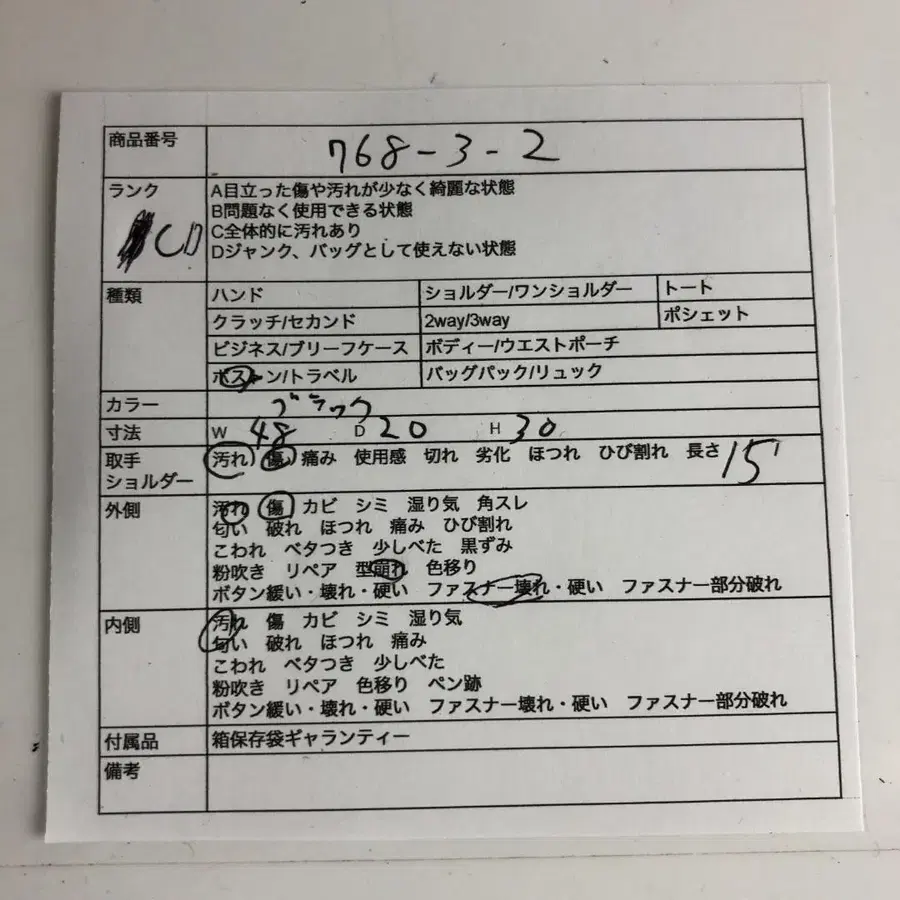 商品番号 768-3-2
ランク A目立った傷や汚れが少なく綺麗な状態
B問題なく使用できる状態
CD C全体的に汚れあり
Dジャンク、バッグとして使えない状態
種類 ハンド ショルダー/ワンショルダー トート
クラッチ/セカンド 2way/3way ポシェット
ビジネス/ブリーフケース ボディー/ウエストポーチ
ボストン/トラベル バッグパック/リュック
カラー ブラック
寸法 W 48 D 20 H 30
取手 汚れ 傷 痛み 使用感 切れ 劣化 ほつれ ひび割れ 長さ 15
ショルダー
外側 汚れ 傷 カビ シミ 湿り気 角スレ
匂い 破れ ほつれ 痛み ひび割れ
こわれ ベタつき 少しべた 黒ずみ
粉吹き リペア 型崩れ 色移り
ボタン緩い・壊れ・硬い ファスナー壊れ・硬い ファスナー部分破れ
内側 汚れ 傷 カビ シミ 湿り気
匂い 破れ ほつれ 痛み
こわれ ベタつき 少しべた
粉吹き リペア 色移り ペン跡
ボタン緩い・壊れ・硬い ファスナー壊れ・硬い ファスナー部分破れ
付属品 箱保存袋ギャランティー
備考